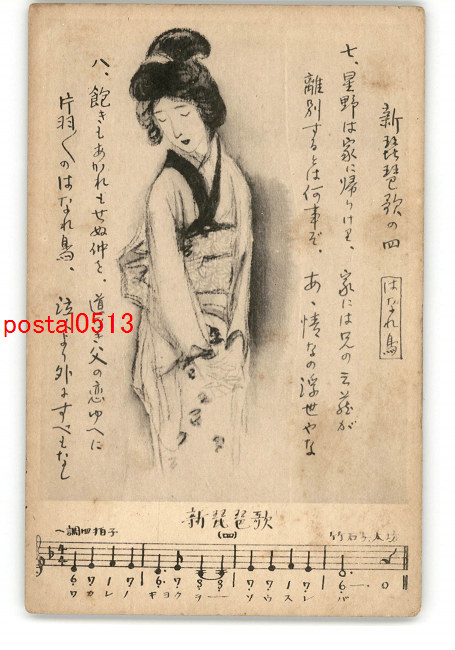 新琵琶歌の四
はなれ鳥
七、星野は家に帰りけり、家には兄の三蔵が
離別するとは何事ぞ、あゝ情なの浮世やな
八、飽きもあかれもせぬ仲を、道な父の恋ゆへに
片羽〱のはなれ鳥、泣くより外にすべもなし
postal0513
新琵琶歌
(四)
ヘ調四拍子
6 7 1 7 6 7 8 8 7 7 1 7 6 0
ワカレノキヨクヲーソウスレバ